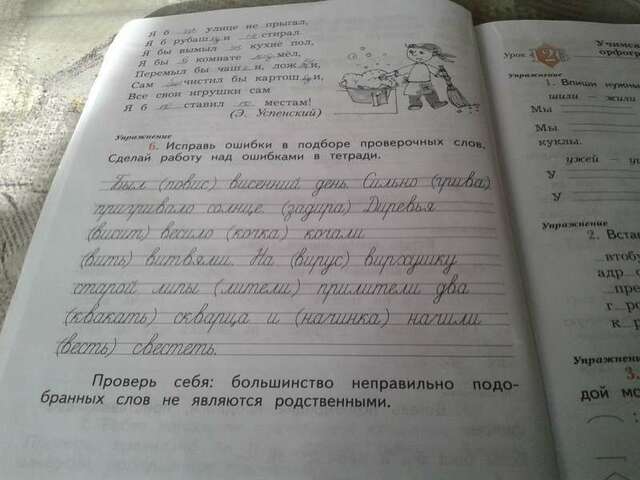 Я б улице не прыгал,
Я б рубаш и стирал
Я бы вымыл кухне пол,
Я бы комнате мёл,
Перемыл бы чаш и, лож и,
Сам чистил бы картош и,
Все свои игрушки сам
Я б ставил местам!
(Э. Успенский)
Упражнение
6. Исправь ошибки в подборе проверочных слов.
Сделай работу над ошибками в тетради.
Был (повис) висенний день. Сильно (грива)
пригривало солнце. (задира) Диревья
(висит) весило (кочка) качали
(вить) витвями. На (вирус) вирхушку
старой липы (лители) прилители два
(квакать) скварца и (начинка) начили
(весть) свестеть.
Проверь себя: большинство неправильно подо-
бранных слов не являются родственными.
Урок 2
Упражнение
1. Впиши
шили — жили
Мы
Мы
куклы.
ужей —
У
У
Упражнение
2.
втобу
адр с
пре
г р
к р
Упражнение
3.
дой